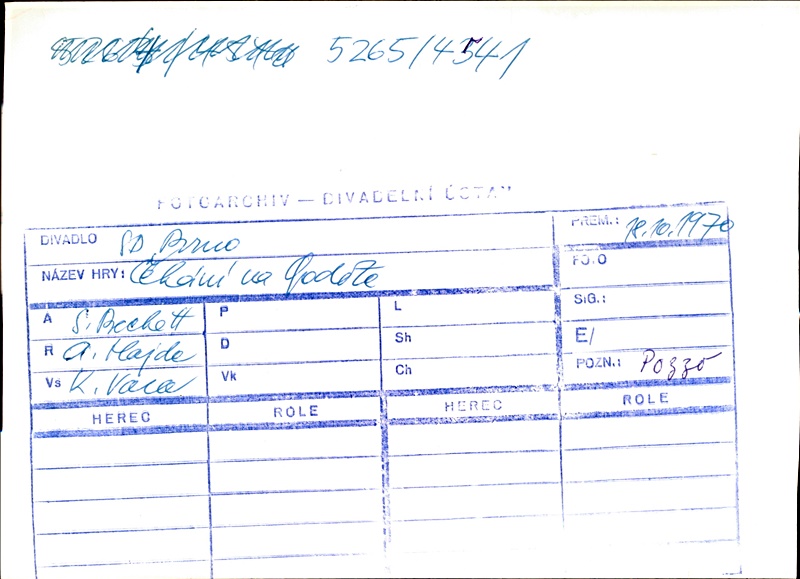 5265/4541
FOTOARCHIV — DIVADELNÍ ÚSTAV
DIVADLO SD Brno
PREM.: 18.10.1970
NÁZEV HRY: Čekání na Godota
FOTO
A S. Beckett
P
L
SIG.:
R A. Hajda
D
Sh
E/
Vs K. Vaca
Vk
Ch
POZN.: Pozzo
HEREC ROLE HEREC ROLE